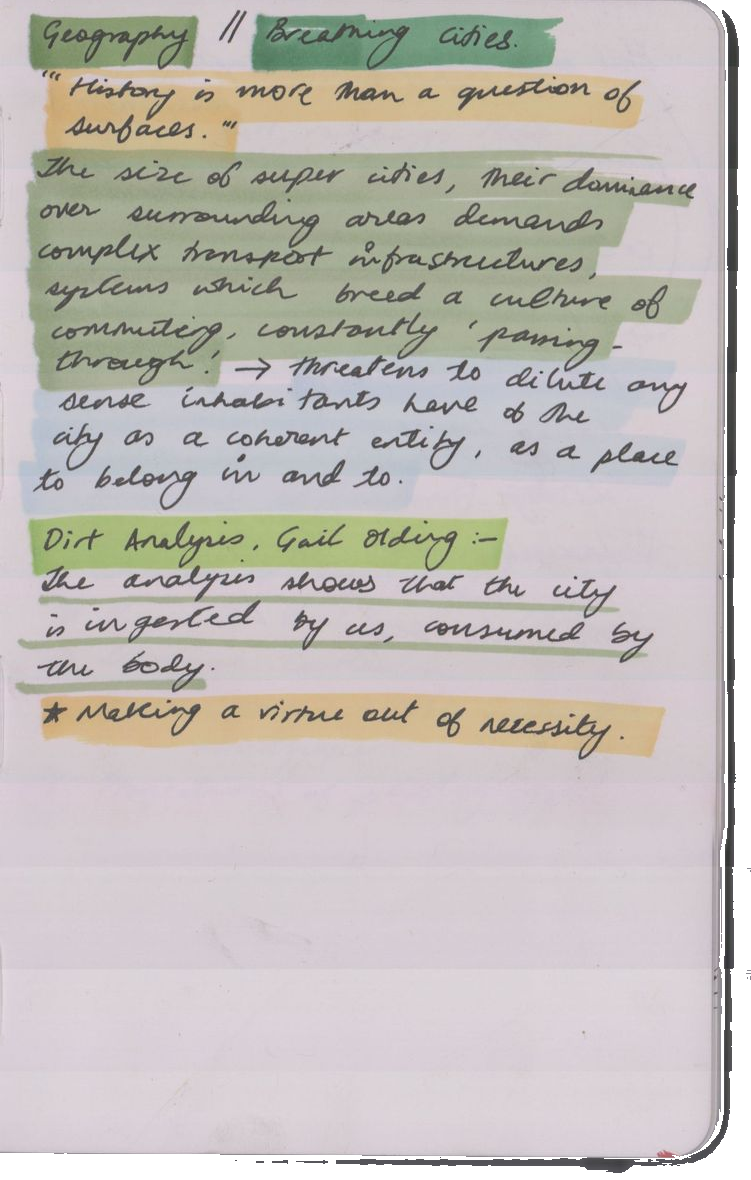 Geography // Breathing cities.
"' History is more than a question of
surfaces."'
The size of super cities, their dominance
over surrounding areas demands
complex transport infrastructures,
systems which breed a culture of
commuting, constantly 'passing-
through'. → threatens to dilute any
sense inhabitants have of the
city as a coherent entity, as a place
to belong in and to.
Dirt Analysis, Gail Olding :-
The analysis shows that the city
is ingested by us, consumed by
the body.
★ Making a virtue out of necessity.